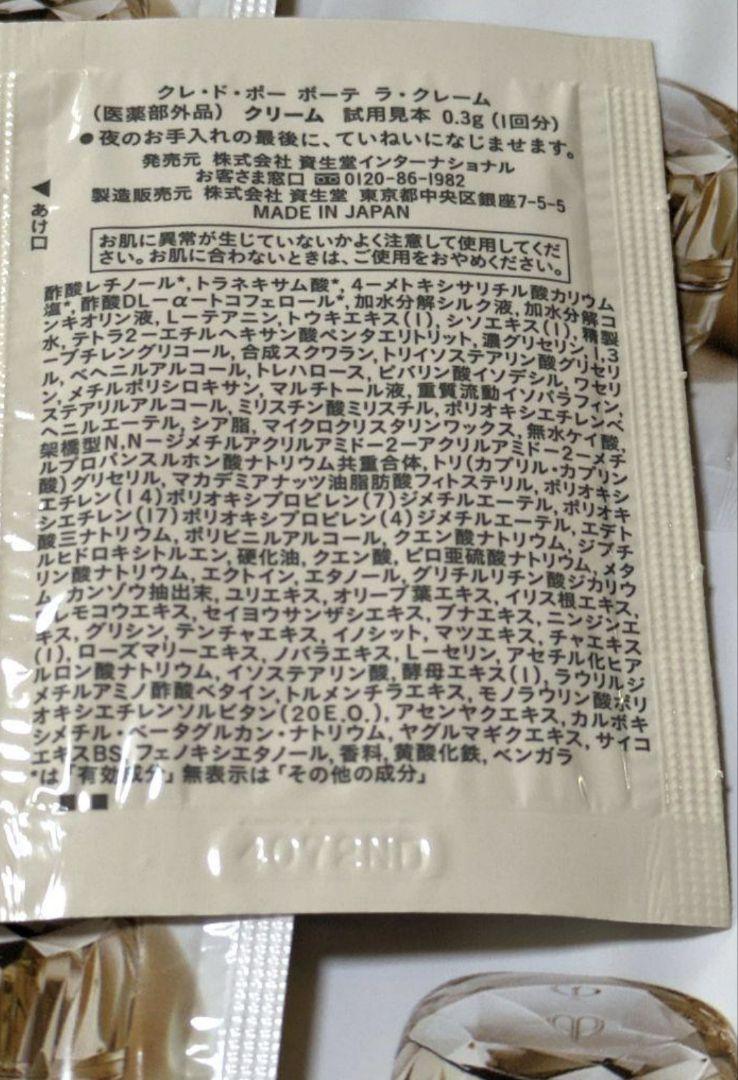 クレ・ド・ポー ボーテ ラ・クレーム
（医薬部外品） クリーム 試用見本 0.3g（1回分）
●夜のお手入れの最後に、ていねいになじませます。
発売元 株式会社 資生堂インターナショナル
お客さま窓口 0120-86-1982
製造販売元 株式会社 資生堂 東京都中央区銀座7-5-5
MADE IN JAPAN
◀あけ口
お肌に異常が生じていないかよく注意して使用してくだ
さい。お肌に合わないときは、ご使用をおやめください。
酢酸レチノール*, トラネキサム酸*, 4ーメトキシサリチル酸カリウム
塩*, 酢酸DLーαートコフェロール*, 加水分解シルク液, 加水分解コ
ンキオリン液, Lーテアニン, トウキエキス(1), シソエキス(1), 精製
水, テトラ2ーエチルヘキサン酸ペンタエリトリット, 濃グリセリン, 1,3
ーブチレングリコール, 合成スクワラン, トリイソステアリン酸グリセリ
ル, ベヘニルアルコール, トレハロース, ピバリン酸イソデシル, ワセリ
ン, メチルポリシロキサン, マルチトール液, 重質流動イソパラフィン,
ステアリルアルコール, ミリスチン酸ミリスチル, ポリオキシエチレンベ
ヘニルエーテル, シア脂, マイクロクリスタリンワックス, 無水ケイ酸,
架橋型N,Nージメチルアクリルアミドー2ーアクリルアミドー2ーメチ
ルプロパンスルホン酸ナトリウム共重合体, トリ(カプリル・カプリン
酸)グリセリル, マカデミアナッツ油脂肪酸フィトステリル, ポリオキシ
エチレン(14)ポリオキシプロピレン(7)ジメチルエーテル, ポリオキ
シエチレン(17)ポリオキシプロピレン(4)ジメチルエーテル, エデト
酸三ナトリウム, ポリビニルアルコール, クエン酸ナトリウム, ジブチ
ルヒドロキシトルエン, 硬化油, クエン酸, ピロ亜硫酸ナトリウム, メタ
リン酸ナトリウム, エクトイン, エタノール, グリチルリチン酸ジカリウ
ム, カンゾウ抽出末, ユリエキス, オリーブ葉エキス, イリス根エキス,
ワレモコウエキス, セイヨウサンザシエキス, ブナエキス, ニンジンエ
キス, グリシン, テンチャエキス, イノシット, マツエキス, チャエキス
(1), ローズマリーエキス, ノバラエキス, Lーセリン, アセチル化ヒア
ルロン酸ナトリウム, イソステアリン酸, 酵母エキス(1), ラウリルジ
メチルアミノ酢酸ベタイン, トルメンチラエキス, モノラウリン酸ポリ
オキシエチレンソルビタン(20E.O.), アセンヤクエキス, カルボキ
シメチル・ベータグルカン・ナトリウム, ヤグルマギクエキス, サイコ
エキスBS, フェノキシエタノール, 香料, 黄酸化鉄, ベンガラ
*は「有効成分」無表示は「その他の成分」